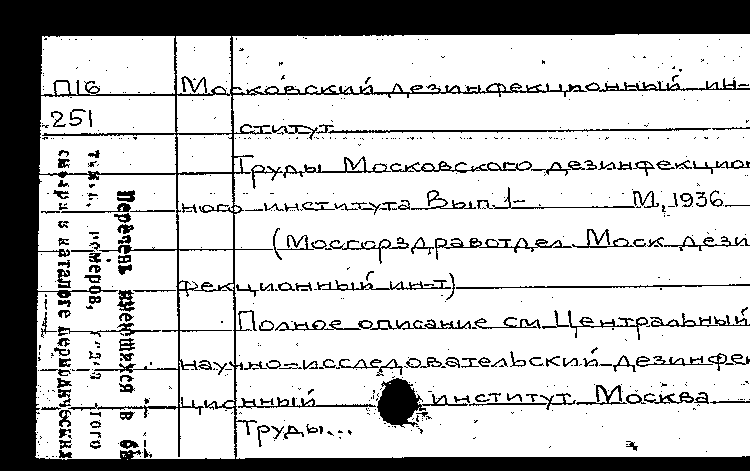 П16 Московский дезинфекционный ин-
251 ститут
Труды Московского дезинфекцион
ного института Вып. 1- М, 1936
(Мосгорздравотдел Моск дези
фекционный ин-т)
Полное описание см Центральный
научно-исследовательский дезинфек
ционный институт. Москва.
Труды...
Перечень имеющихся в
номеров, того
смотри в каталоге периодических